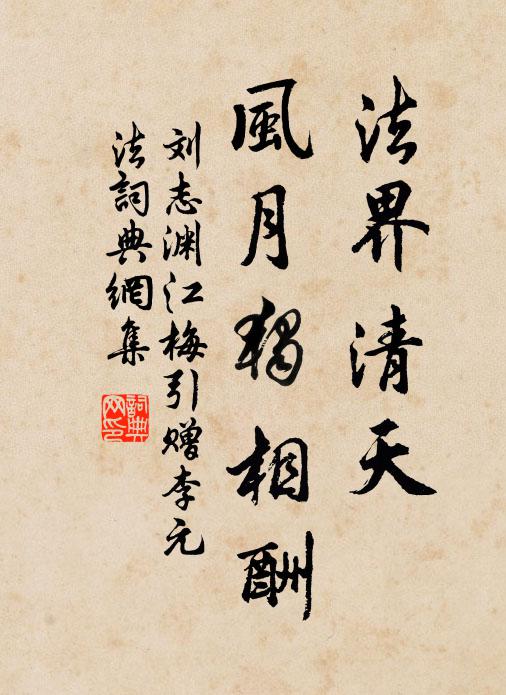 法界清天
風月獨相酬
刘志渊江梅引赠李元
法詞典網集
詞典网印